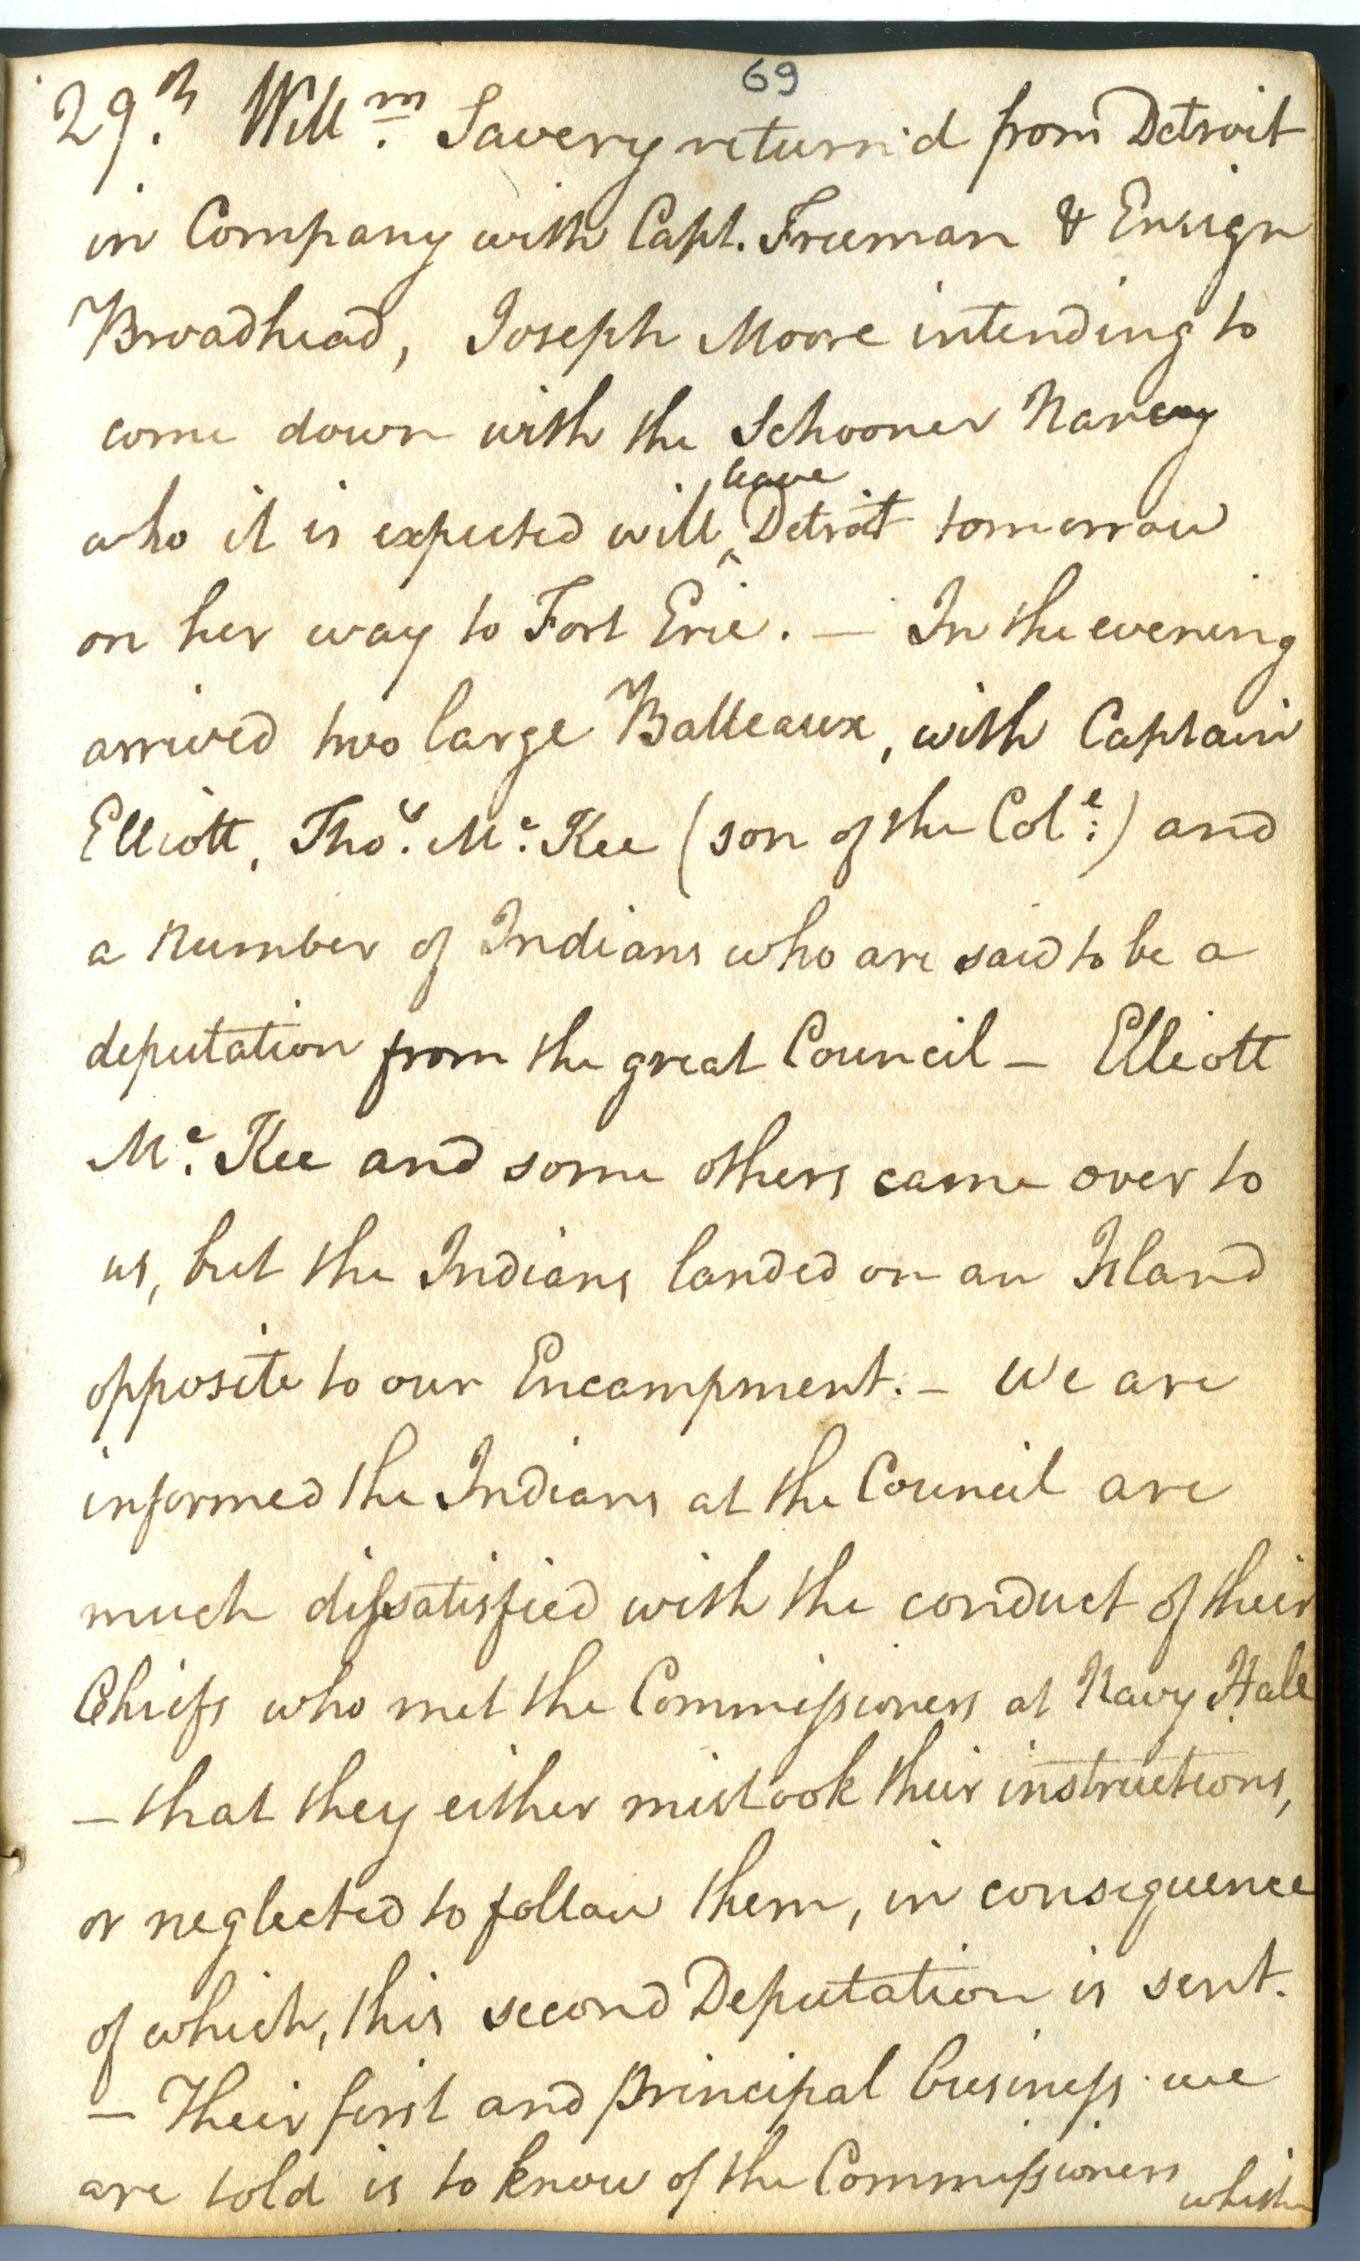 69
29.th Will.m Savery return'd from Detroit
in Company with Capt. Freeman & Ensign
Broadhead, Joseph Moore intending to
come down with the Schooner Nancy
leave
who it is expected will ^ Detroit tomorrow
on her way to Fort Erie. — In the evening
arrived two large Batteaux, with Captain
Elliott, Tho.s Mc. Kee (son of the Col.e) and
a number of Indians who are said to be a
deputation from the great Council — Elliott
Mc. Kee and some others came over to
us, but the Indians landed on an Island
opposite to our Encampment. — We are
informed the Indians at the Council are
much dissatisfied with the conduct of their
Chiefs who met the Commissioners at Navy Hall
— that they either mistook their instructions,
or neglected to follow them, in consequence
of which, this second Deputation is sent.
— Their first and principal business we
are told is to know of the Commissioners whether